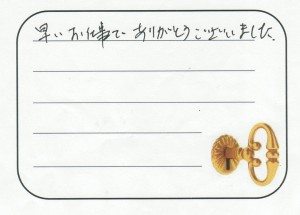 早いお仕事でありがとうございました。